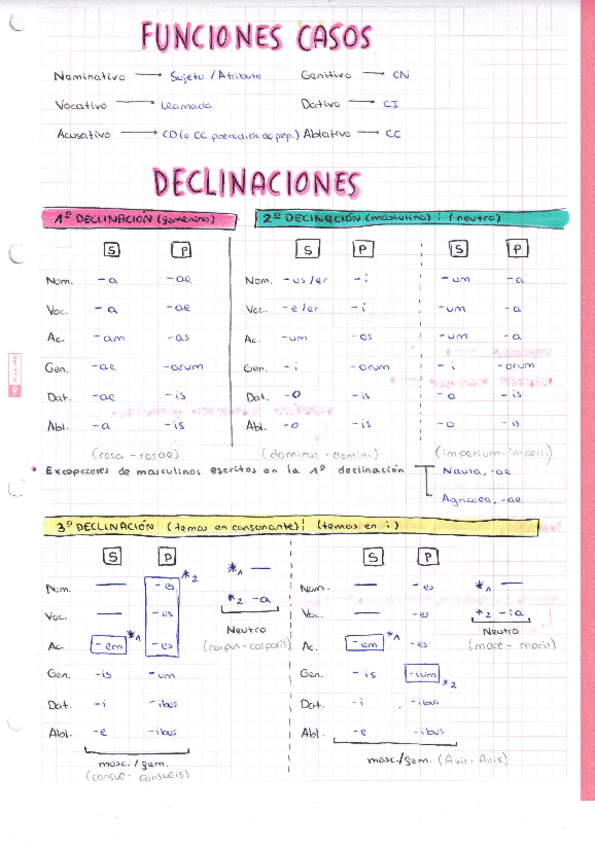 FUNCIONES CASOS
Nominativo → Sujeto / Atributo Genitivo → CN
Vocativo → Llamada Dativo → CI
Acusativo → CD (o CC precedido de prep.) Ablativo → CC
DECLINACIONES
1º DECLINACIÓN (femenino) 2º DECLINACIÓN (masculino) ¦ (neutro)
S P S P S P
Nom. -a -ae Nom. -us/er -i -um -a
Voc. -a -ae Voc. -e/er -i -um -a
Ac. -am -as Ac. -um -os -um -a
Gen. -ae -arum Gen. -i -orum -i -orum
Dat. -ae -is Dat. -o -is -o -is
Abl. -a -is Abl. -o -is -o -is
(rosa - rosae) (dominus - domini) (imperium - imperii)
* Excepciones de masculinos escritos en la 1º declinación Nauta, -ae
Agricola, -ae
3º DECLINACIÓN (temas en consonante) ¦ (temas en i)
S P S P
Nom. — -es *2 *1 — Nom. — -es *1 —
Voc. — -us *2 -a Voc. — -es *2 -ia
Neutro Neutro
Ac. -em *1 -es (corpus - corporis) Ac. -em *1 -es (mare - maris)
Gen. -is -um Gen. -is -ium *2
Dat. -i -ibus Dat. -i -ibus
Abl. -e -ibus Abl. -e -ibus
masc./fem. masc./fem. (Avis - Avis)